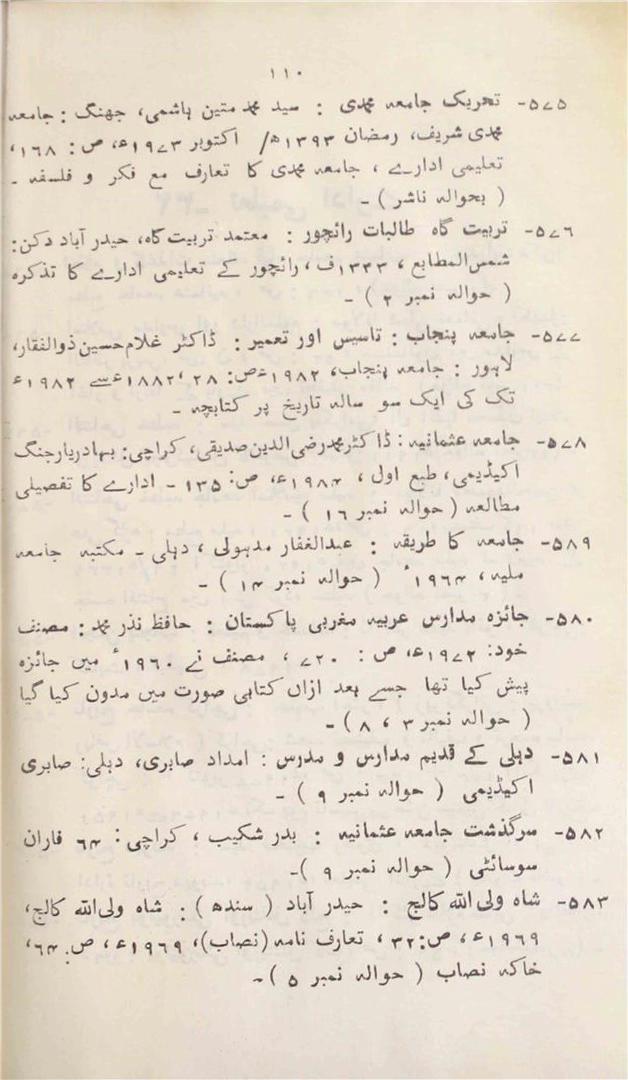 ۱۱۰
۵۷۵- تحریک جامعہ محمدی : سید محمد متین ہاشمی، جھنگ : جامعہ
محمدی شریف، رمضان ۱۳۹۳ھ/ اکتوبر ۱۹۷۳ء، ص : ۱۶۸،
تعلیمی ادارے ، جامعہ محمدی کا تعارف مع فکر و فلسفہ -
( بحوالہ ناشر ) -
۵۷۶- تربیت گاہ طالبات رائچور : معتمد تربیت گاہ، حیدر آباد دکن:
شمس المطابع ، ۱۳۴۳ف ، رائچور کے تعلیمی ادارے کا تذکرہ
( حوالہ نمبر ۲ ) -
۵۷۷- جامعہ پنجاب : تاسیس اور تعمیر : ڈاکٹر غلام حسین ذوالفقار،
لاہور : جامعہ پنجاب، ۱۹۸۲ء ص: ۲۸ ، ۱۸۸۲ء سے ۱۹۸۲ء
تک کی ایک سو سالہ تاریخ پر کتابچہ -
۵۷۸- جامعہ عثمانیہ : ڈاکٹر محمد رضی الدین صدیقی، کراچی: بہادر یار جنگ
اکیڈیمی، طبع اول ، ۱۹۸۴ء، ص: ۱۳۵ - ادارے کا تفصیلی
مطالعہ ( حوالہ نمبر ۱۶ ) -
۵۸۹- جامعہ کا طریقہ : عبدالغفار مدہولی ، دہلی - مکتبہ جامعہ
ملیہ ، ۱۹۶۴ء ( حوالہ نمبر ۱۴ ) -
۵۸۰- جائزہ مدارس عربیہ مغربی پاکستان : حافظ نذر محمد : مصنف
خود: ۱۹۷۲ء، ص : ۷۲۰ ، مصنف نے ۱۹۶۰ء میں جائزہ
پیش کیا تھا جسے بعد ازاں کتابی صورت میں مدون کیا گیا
( حوالہ نمبر ۳ ، ۸ ) -
۵۸۱- دہلی کے قدیم مدارس و مدرس : امداد صابری، دہلی: صابری
اکیڈیمی ( حوالہ نمبر ۹ ) -
۵۸۲- سرگذشت جامعہ عثمانیہ : بدر شکیب ، کراچی : ۶۴ فاران
سوسائٹی ( حوالہ نمبر ۹ )-
۵۸۳- شاہ ولی اللہ کالج : حیدر آباد ( سندھ ) : شاہ ولی اللہ کالج،
۱۹۶۹ء ، ص: ۳۲ ، تعارف نامہ (نصاب)، ۱۹۶۹ء ، ص: ۶۴،
خاکہ نصاب ( حوالہ نمبر ۵ ) -